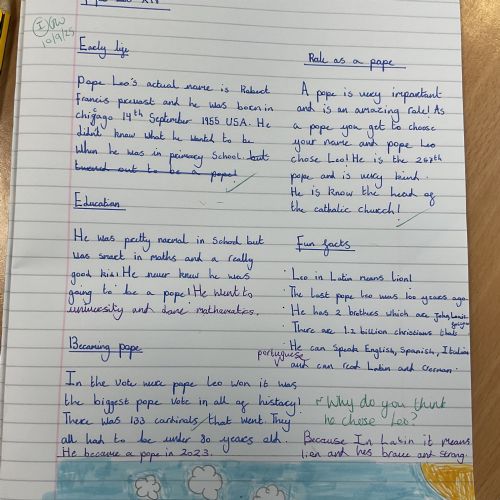 Pope Leo XIV
I
10/9/25
Early life
Pope Leo's actual name is Robert
Francis prevost and he was born in
chicago 14th September 1955 USA. He
didn't know what he wanted to be
When he was in primary School but
turned out to be a pope!
Education
He was pretty normal in School but
was smart in maths and a really
good kid! He never knew he was
going to be a pope! He went to
university and done mathematics.
Becoming pope
In the vote were pope Leo won it was
the biggest pope vote in all of history!
There was 133 cardinals that went. They
all had to be under 80 years old.
He became a pope in 2023.
Role as a pope
A pope is very important
and is an amazing role! As
a pope you get to choose
your name and pope Leo
chose Leo! He is the 267th
pope and is very kind.
He is know the head of
the catholic church!
Fun facts
· Leo in Latin means Lion!
· The last pope Leo was 100 years ago.
· He has 2 brothers which are John, Louis
· There are 1.2 billion christions that
· He can speak English, Spanish, Italian
portuguese and can read Latin and German.
Why do you think
he chose Leo?
Because In Latin it means
lion and hes brave and strong.